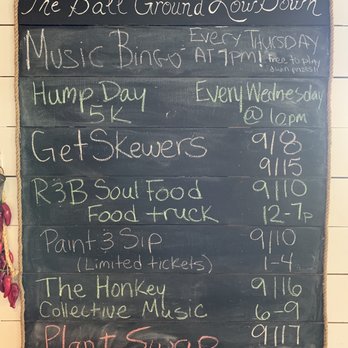 The Ball Ground Low Down
Music Bingo Every Thursday
AT 7pm! free to play
win prizes!!
Hump Day Every Wednesday
5K @ 6pm
Get Skewers 9/8
9/15
R&B Soul Food 9/10
Food truck 12-7p
Paint & Sip 9/10
(Limited tickets) 1-4
The Honkey 9/16
Collective Music 6-9
Plant Swap 9/17